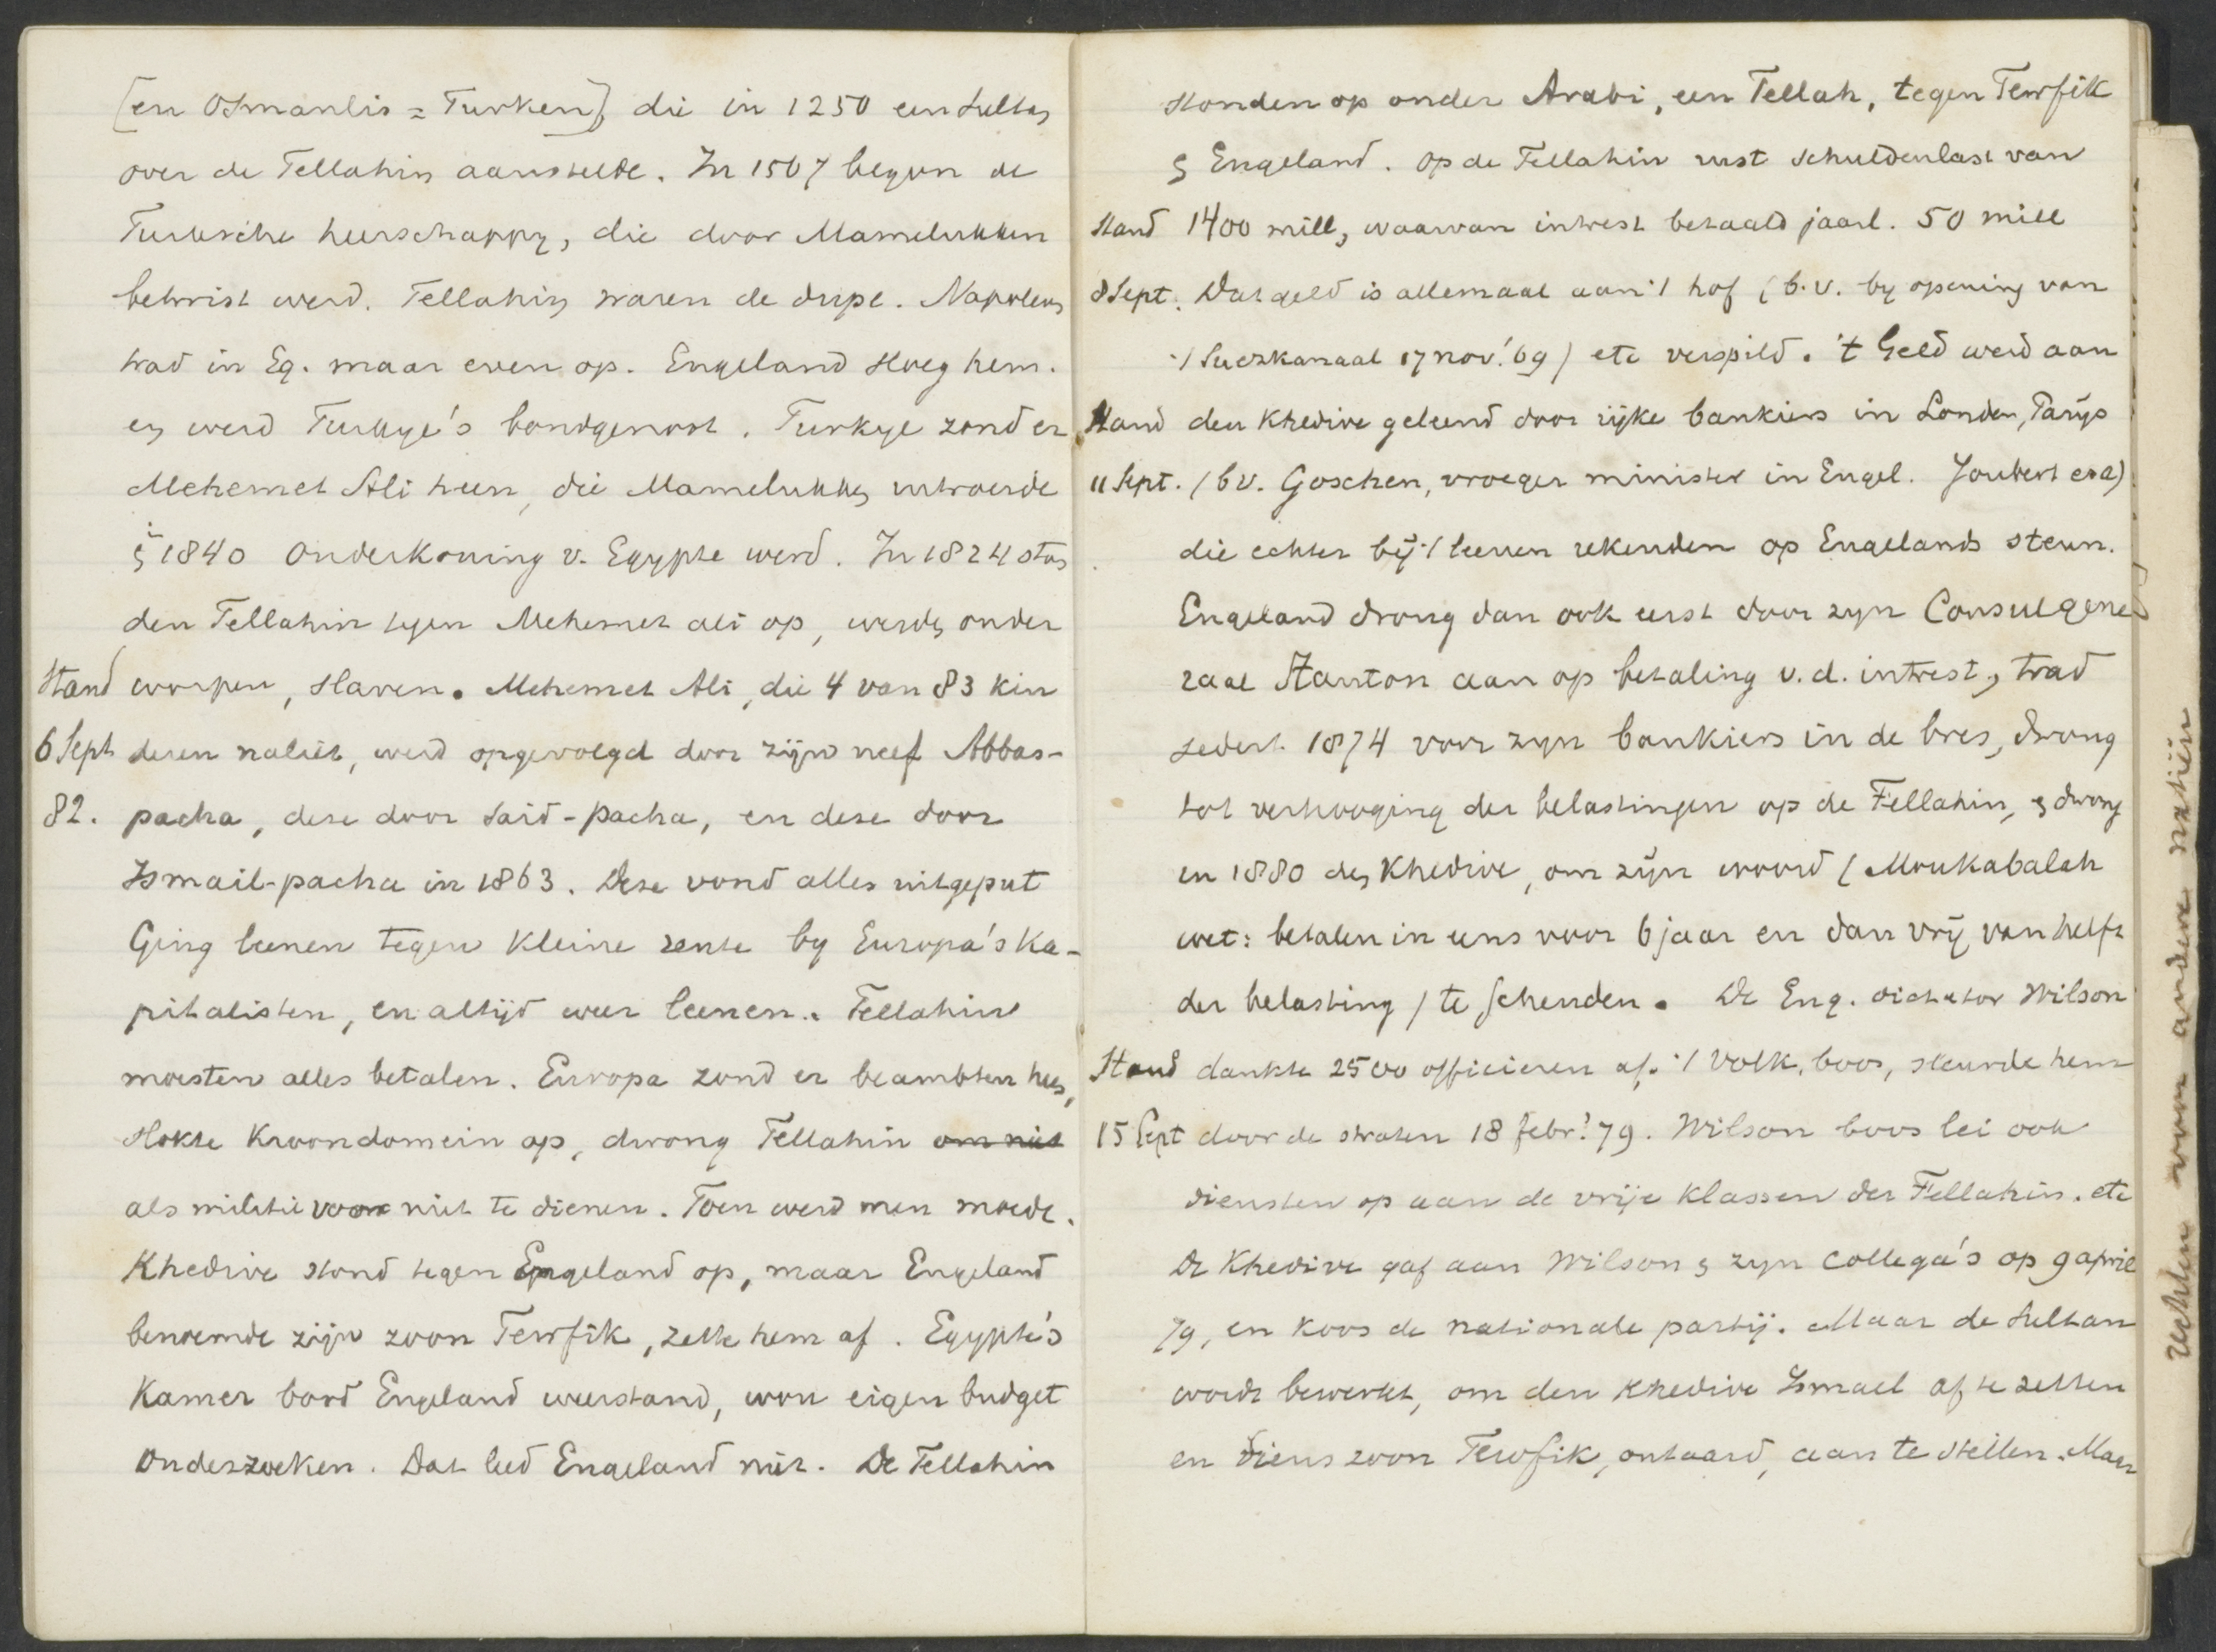 [en Osmanlis = Turken], die in 1250 een Sultan
over de Fellahin aanstelde. In 1507 begon de
Turksche heerschappy, die door Mamelukken
betwist werd. Fellahin waren de dupe. Napoleon
trad in Eg. maar even op. Engeland sloeg hem.
en werd Turkye's bondgenoot. Turkye zond er
Mehemet Ali heen, die Mamelukken uitroeide
& 1840 Onderkoning v. Egypte werd. In 1824 ston
den Fellahin tegen Mehemet Ali op, werden onder
Stand worpen, slaven. Mehemet Ali, die 4 van 83 kin
6 Sept deren naliet, werd opgevolgd door zijn neef Abbas-
82. pacha, deze door Said-pacha, en deze door
Ismail-pacha in 1863. Deze vond alles uitgeput
Ging leenen tegen kleine rente by Europa's Ka-
pitalisten, en altijd weer leenen. Fellahin
moesten alles betalen. Europa zond er beambten heen,
slokte Kroondomein op, dwong Fellahin om niet
als militie voor niet te dienen. Toen werd men moede.
Khedive stond tegen Engeland op, maar Engeland
benoemde zijn zoon Tewfik, zette hem af. Egypte's
Kamer bood Engeland weerstand, wou eigen budget
onderzoeken. Dat leed Engeland niet. De Fellahin
stonden op onder Arabi, een Fellah, tegen Tewfik
& Engeland. Op de Fellahin rust schuldenlast van
Stand 1400 mill, waarvan intrest betaald jaarl. 50 mill
8 Sept. Dat geld is allemaal aan 't hof (b.v. by opening van
't Suezkanaal 17 nov. '69) etc verspild. 't Geld werd aan
Stand den Khedive geleend door rijke bankiers in Londen, Parijs
11 Sept. (bv. Goschen, vroeger minister in Engel. Joubert e.a)
die echter bij 't leenen rekenden op Engelands steun.
Engeland drong dan ook eerst door zyn Consulgene
raal Stanton aan op betaling v.d. intrest, trad
sedert 1874 voor zyn bankiers in de bres, drong
tot verhooging der belastingen op de Fellahin, & dwong
in 1880 den Khedive, om zijn woord (Moukabalah
wet: betalen in eens voor 6 jaar en dan vrij van helft
der belasting) te schenden. De Eng. dictator Wilson
Stand dankte 2500 officieren af. 't Volk, boos, sleurde hem
15 Sept door de straten 18 febr. '79. Wilson boos lei ook
diensten op aan de vrije klassen der Fellahin. etc
De Khedive gaf aan Wilson & zyn collega's op 9 april
79, en koos de nationale partij. Maar de Sultan
wordt bewerkt, om den Khedive Ismael af te zetten
en diens zoon Tewfik, ontaard, aan te stellen. Maar
rechten voor andere natiën